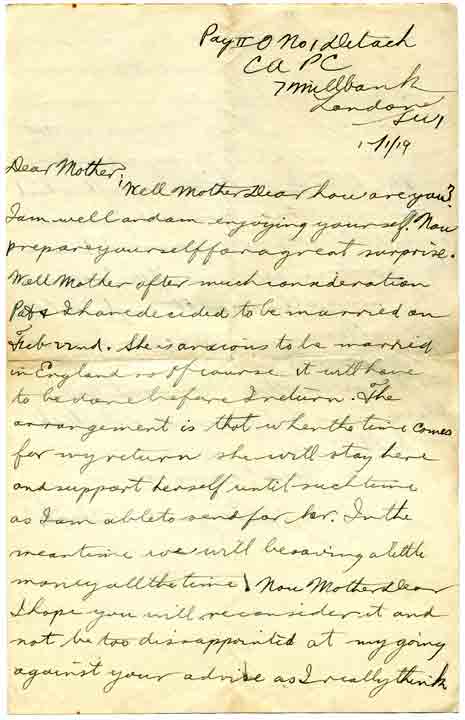 Pay II O No 1 Detach
CA PC
7 Millbank
London
SW1
1/1/19
Dear Mother;
Well Mother Dear how are you?
I am well and am enjoying yourself. Now
prepare yourself for a great surprise.
Well Mother after much consideration
Pat & I have decided to be married on
Feb 22nd. She is anxious to be married
in England so of course it will have
to be done before I return. The
arrangement is that when the time comes
for my return she will stay here
and support herself until such time
as I am able to send for her. In the
meantime we will be saving a little
money all the time. Now Mother Dear
I hope you will reconsider it and
not be too dissappointed at my going
against your advise as I really think